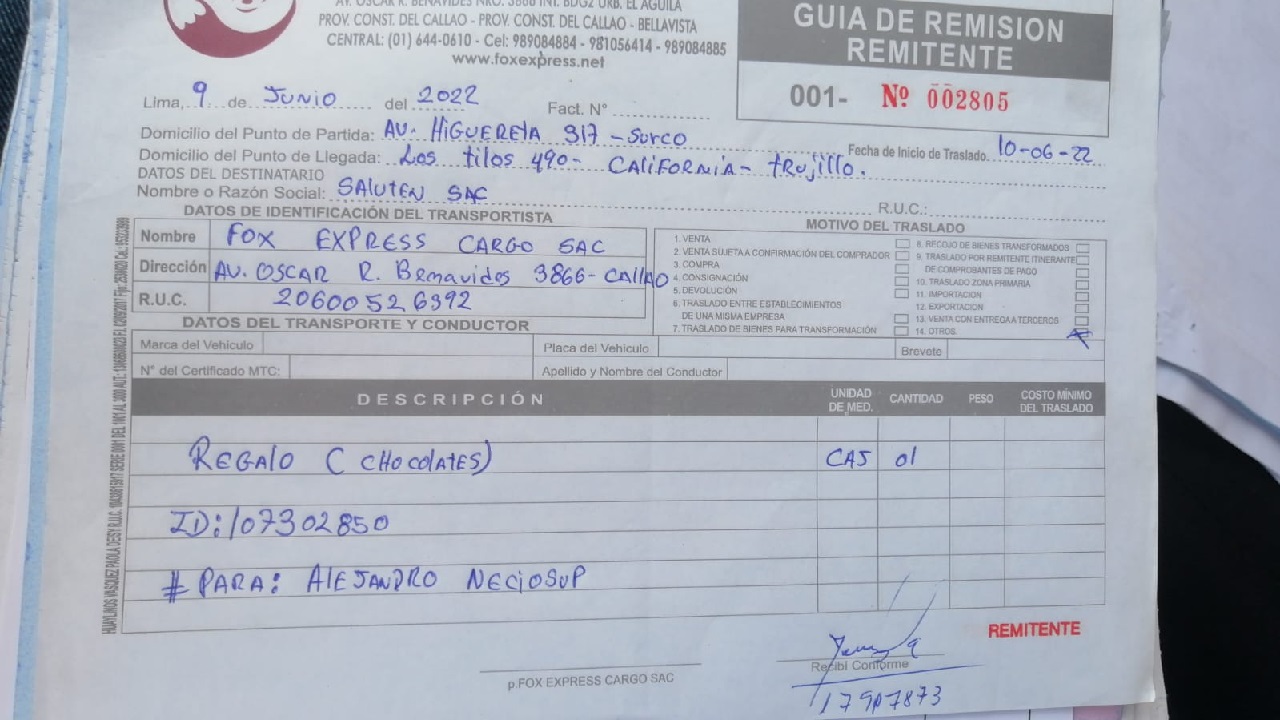 AV. OSCAR R. BENAVIDES NRO. 3866 INT. BDG2 URB. EL AGUILA
PROV. CONST. DEL CALLAO - PROV. CONST. DEL CALLAO - BELLAVISTA
CENTRAL: (01) 644-0610 - Cel: 989084884 - 981056414 - 989084885
www.foxexpress.net
GUIA DE REMISION
REMITENTE
001- Nº 002805
Lima, 9 de JUNIO del 2022 Fact. N°
Domicilio del Punto de Partida: AV. HIGUERETA 317 - SURCO
Fecha de Inicio de Traslado. 10-06-22
Domicilio del Punto de Llegada: Los tilos 490- CALIFORNIA - trujillo.
DATOS DEL DESTINATARIO
Nombre o Razón Social: SALUTEN SAC R.U.C.:
DATOS DE IDENTIFICACIÓN DEL TRANSPORTISTA
Nombre FOX EXPRESS CARGO SAC
Dirección AV. OSCAR R. Benavides 3866- CALLAO
R.U.C. 20600526392
MOTIVO DEL TRASLADO
1. VENTA
2. VENTA SUJETA A CONFIRMACIÓN DEL COMPRADOR
3. COMPRA
4. CONSIGNACIÓN
5. DEVOLUCIÓN
6. TRASLADO ENTRE ESTABLECIMIENTOS
DE UNA MISMA EMPRESA
7. TRASLADO DE BIENES PARA TRANSFORMACIÓN
8. RECOJO DE BIENES TRANSFORMADOS
9. TRASLADO POR REMITENTE ITINERANTE
DE COMPROBANTES DE PAGO
10. TRASLADO ZONA PRIMARIA
11. IMPORTACION
12. EXPORTACION
13. VENTA CON ENTREGA A TERCEROS
14. OTROS
DATOS DEL TRANSPORTE Y CONDUCTOR
Marca del Vehiculo Placa del Vehiculo Brevete
N° del Certificado MTC: Apellido y Nombre del Conductor
DESCRIPCIÓN UNIDAD DE MED. CANTIDAD PESO COSTO MÍNIMO DEL TRASLADO
REGALO ( CHOCOLATES) CAJ 01
ID:107302850
# PARA: ALEJANDRO NECIOSUP
REMITENTE
p.FOX EXPRESS CARGO SAC
Recibi Conforme